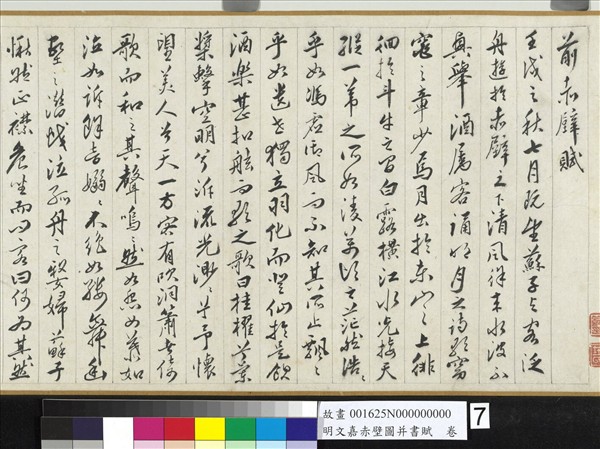 前赤壁賦
壬戌之秋七月既望蘇子与客泛
舟遊於赤壁之下清風徐來水波不
興舉酒屬客誦明月之詩歌窈
窕之章少焉月出於東山之上徘
徊於斗牛之間白露橫江水光接天
縱一葦之所如凌萬頃之茫然浩〻
乎如馮虛御風而不知其所止飄〻
乎如遺世獨立羽化而登仙於是飲
酒樂甚扣舷而歌之歌曰桂櫂兮蘭
槳擊空明兮泝流光渺〻兮予懷
望美人兮天一方客有吹洞簫者倚
歌而和之其聲嗚〻然如怨如慕如
泣如訴餘音嫋〻不絕如縷舞幽
壑之潛蛟泣孤舟之嫠婦蘇子
愀然正襟危坐而問客曰何為其然
故畫 001625N000000000
明文嘉赤壁圖并書賦 卷
7